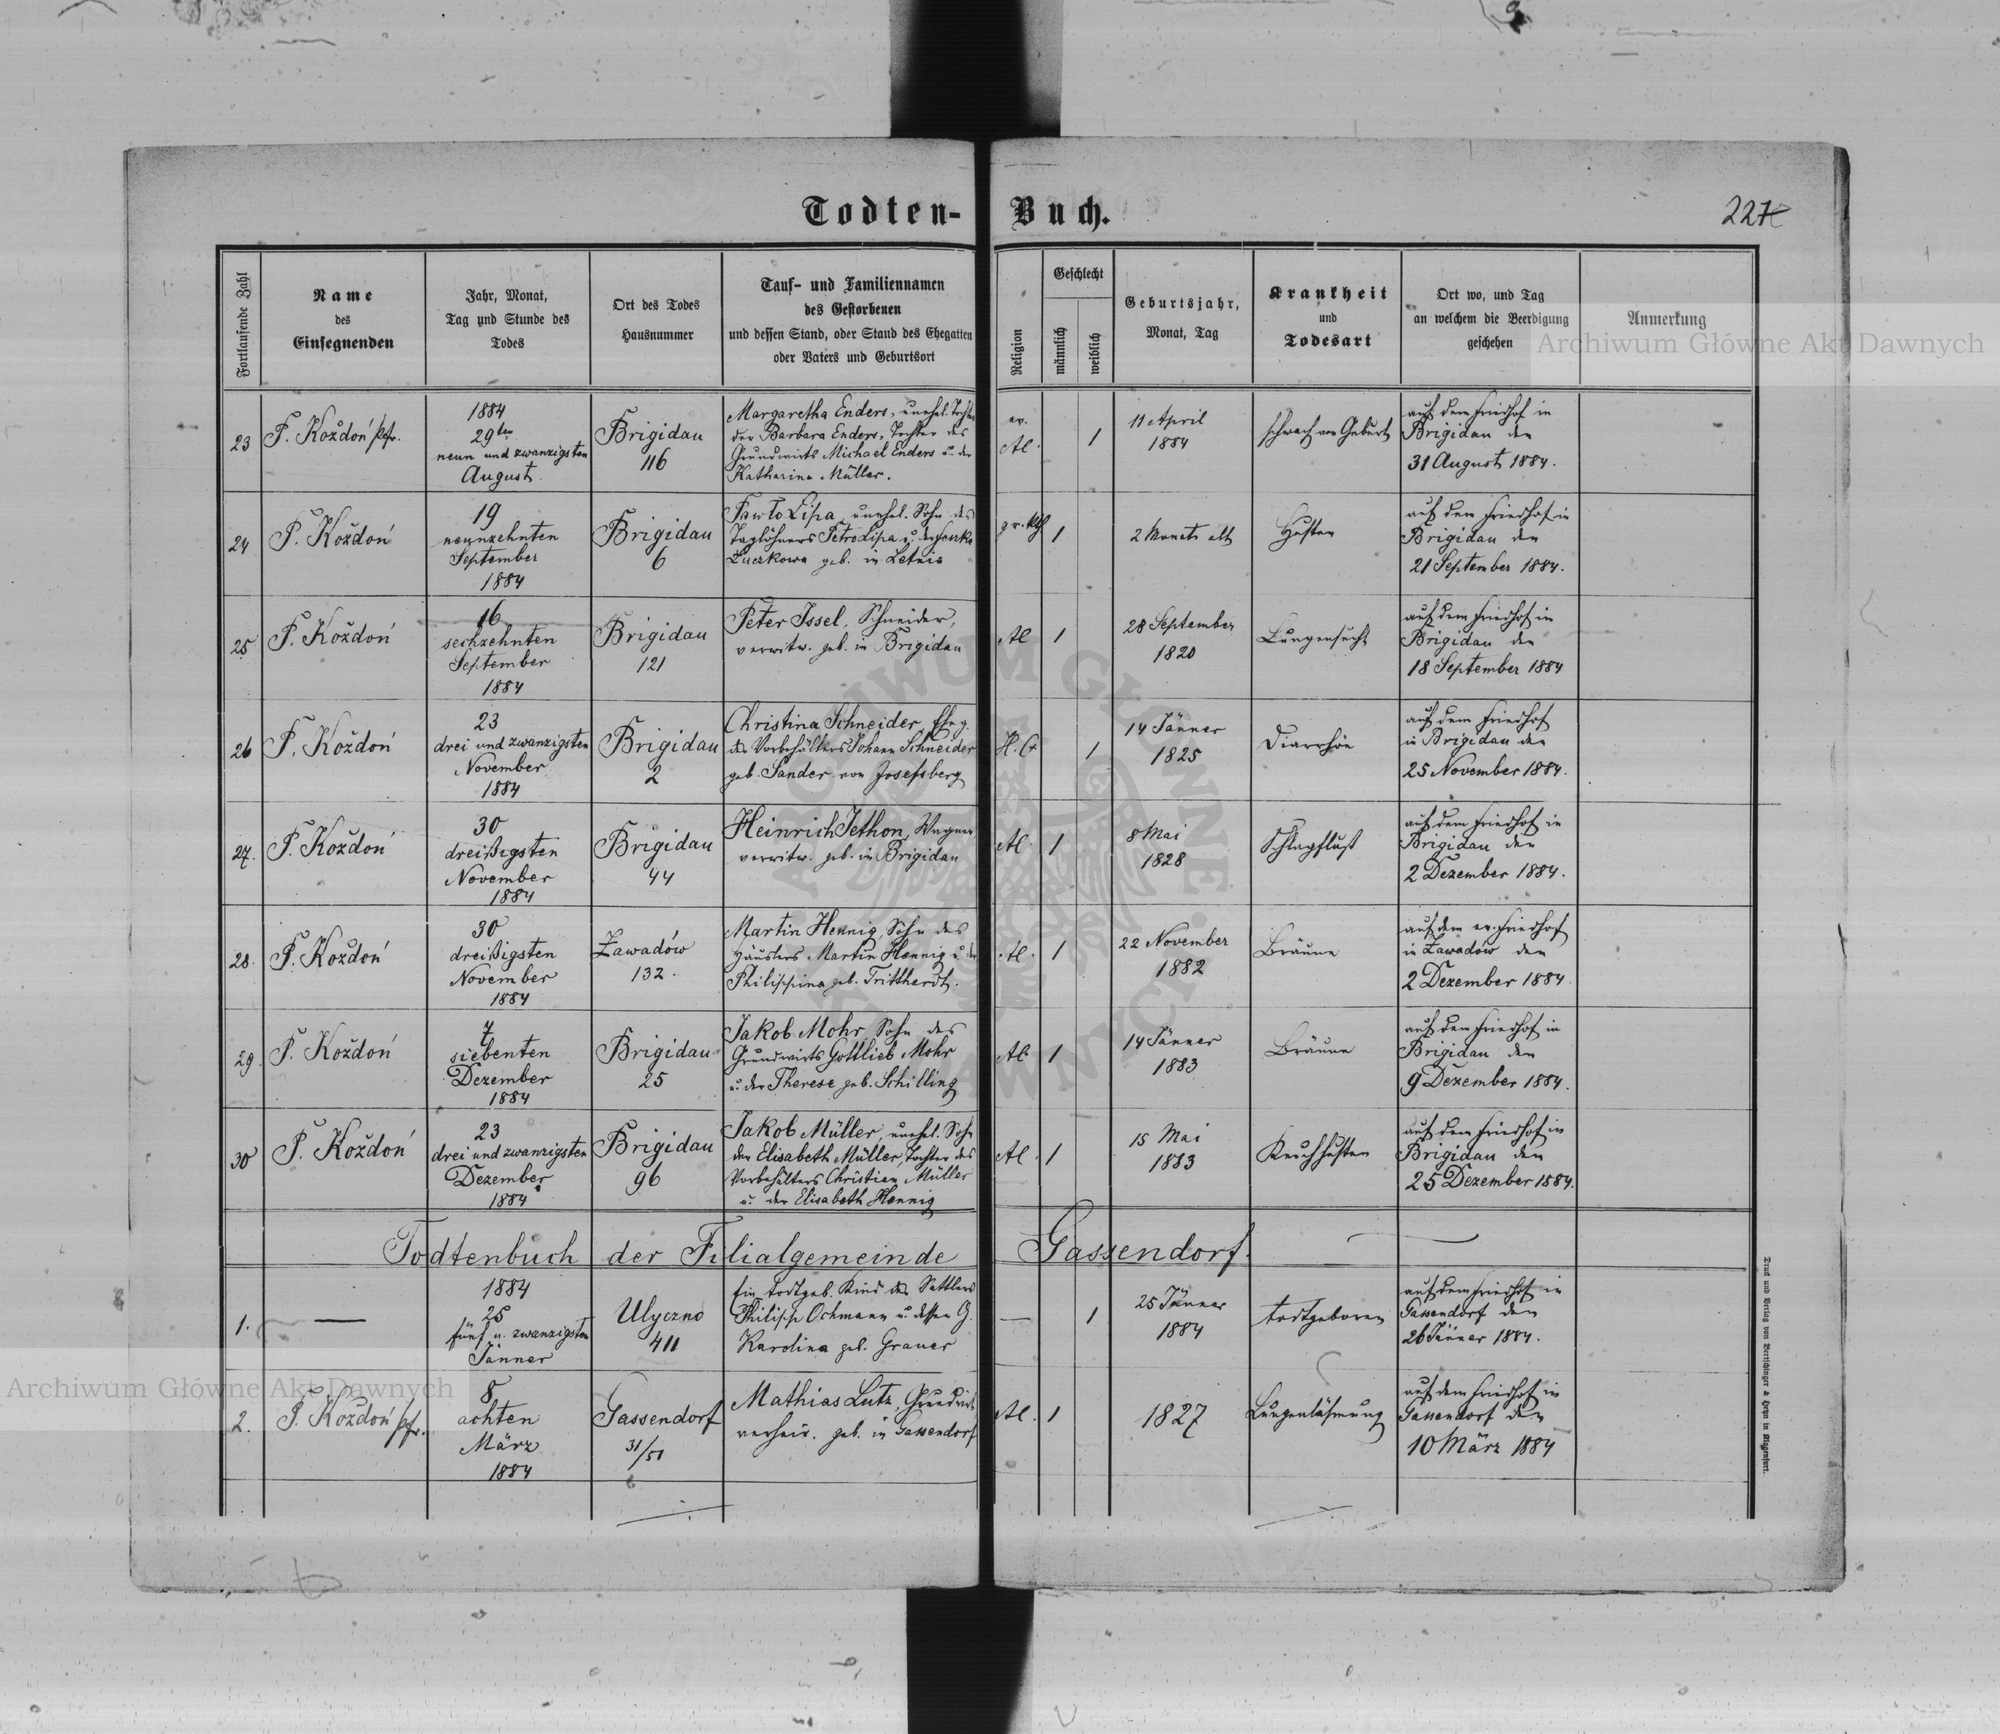 Todten-Buch.
227
Fortlaufende Zahl
Name
des
Einsegnenden
Jahr, Monat,
Tag und Stunde des
Todes
Ort des Todes
Hausnummer
Tauf- und Familiennamen
des Gestorbenen
und dessen Stand, oder Stand des Ehegatten
oder Vaters und Geburtsort
Religion
Geschlecht
männlich
weiblich
Geburtsjahr,
Monat, Tag
Krankheit
und
Todesart
Ort wo, und Tag
an welchem die Beerdigung
geschehen
Anmerkung
23
F. Koždoń pfr.
1884
29ten
neun und zwanzigsten
August
Brigidau
116
Margaretha Enders, unehel. Tochter
der Barbara Enders, Tochter des
Grundwirts Michael Enders u. der
Katharina Müller.
ev.
AC.
1
11 April
1884
schwach von Geburt
auf dem Friedhof in
Brigidau den
31 August 1884.
24
F. Koždoń
19
neunzehnten
September
1884
Brigidau
6
Pawło Lipa, unehel. Sohn des
Taglöhners Petro Lipa u. der
geb. in Letnia
gr. kth
1
2 Monate alt
Husten
auf dem Friedhof in
Brigidau den
21 September 1884.
25
F. Koždoń
16
sechzehnten
September
1884
Brigidau
121
Peter Issel, Schneider,
verwitw. geb. in Brigidau
AC
1
28 September
1820
Lungensucht
auf dem Friedhof in
Brigidau den
18 September 1884
26
F. Koždoń
23
drei und zwanzigsten
November
1884
Brigidau
2
Christina Schneider, Eheg.
des Vorbehälters Johann Schneider
geb. Sander von Josefsberg
H.C.
1
14 Jänner
1825
Diarrhöe
auf dem Friedhof
in Brigidau den
25 November 1884.
27.
F. Koždoń
30
dreißigsten
November
1884
Brigidau
44
Heinrich Jethon, Wagner
verwitw. geb. in Brigidau
AC.
1
8 Mai
1828
Schlagfluß
auf dem Friedhof in
Brigidau den
2 Dezember 1884.
28.
F. Koždoń
30
dreißigsten
November
1884
Zawadów
132.
Martin Hennig, Sohn des
Häuslers Martin Hennig u. der
Philippina geb. Tritthardt.
AC.
1
22 November
1882
Bräune
auf dem ev. Friedhof
in Zawadów den
2 Dezember 1884.
29.
F. Koždoń
7
siebenten
Dezember
1884
Brigidau
25
Jakob Mohr, Sohn des
Grundwirts Gottlieb Mohr
u. der Therese geb. Schilling
AC.
1
14 Jänner
1883
Bräune
auf dem Friedhof in
Brigidau den
9 Dezember 1884.
30
F. Koždoń
23
drei und zwanzigsten
Dezember
1884
Brigidau
96
Jakob Müller, unehel. Sohn
der Elisabeth Müller, Tochter des
Vorbehälters Christian Müller
u. der Elisabeth Hennig
AC.
1
15 Mai
1883
Keuchhusten
auf dem Friedhof in
Brigidau den
25 Dezember 1884.
Todtenbuch der Filialgemeinde Gassendorf.
1.
1884
25
fünf u. zwanzigsten
Jänner
Ulyczno
411
Ein todtgeb. Kind des Sattlers
Philipp Ochmann u. dessen G.
Karolina geb. Grauer
1
25 Jänner
1884
todtgeboren
auf dem Friedhof in
Gassendorf den
26 Jänner 1884.
2.
F. Koždoń pfr.
8
achten
März
1884
Gassendorf
31/51
Mathias Lutz, Grundwirt
verheir. geb. in Gassendorf
AC.
1
1827
Lungenlähmung
auf dem Friedhof in
Gassendorf den
10 März 1884
Druck und Verlag von Bertschinger & Heyn in Klagenfurt.
Archiwum Główne Akt Dawnych
Archiwum Główne Akt Dawnych
ARCHIWUM GŁÓWNE AKT DAWNYCH